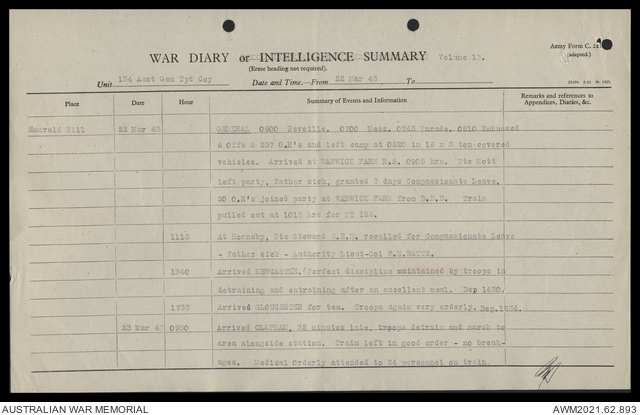 Army Form C.
(adapted.)
WAR DIARY or INTELLIGENCE SUMMARY Volume 13.
(Erase heading not required).
Unit 134 Aust Gen Tpt Coy Date and Time.—From 22 Mar 43 To
Place Date Hour Summary of Events and Information Remarks and references to Appendices, Diaries, &c.
Emerald Hill 22 Mar 43 GENERAL 0600 Reveille. 0700 Mess. 0745 Parade. 0810 Embussed
6 Offs & 237 O.R's and left camp at 0820 in 16 x 3 ton covered
vehicles. Arrived at WARWICK FARM R.S. 0905 hrs. Pte Mott
left party, father sick, granted 3 days Compassionate Leave.
20 O.R's joined party at WARWICK FARM from D.D.D. Train
pulled out at 1015 hrs for
1115 At Hornsby, Pte Steward J.E.N. recalled for Compassionate Leave
- father sick - Authority Lieut-Col WATTS.
1340 Arrived NEWCASTLE. Perfect discipline maintained by troops in
detraining and entraining after an excellent meal. Dep 1430.
1735 Arrived GLOUCESTER for tea. Troops again very orderly. Dep.1834.
23 Mar 43 0920 Arrived CLAPHAM, 32 minutes late, troops detrain and march to
area alongside station. Train left in good order - no break-
ages. Medical Orderly attended to 24 personnel on train.
AUSTRALIAN WAR MEMORIAL
AWM2021.62.893